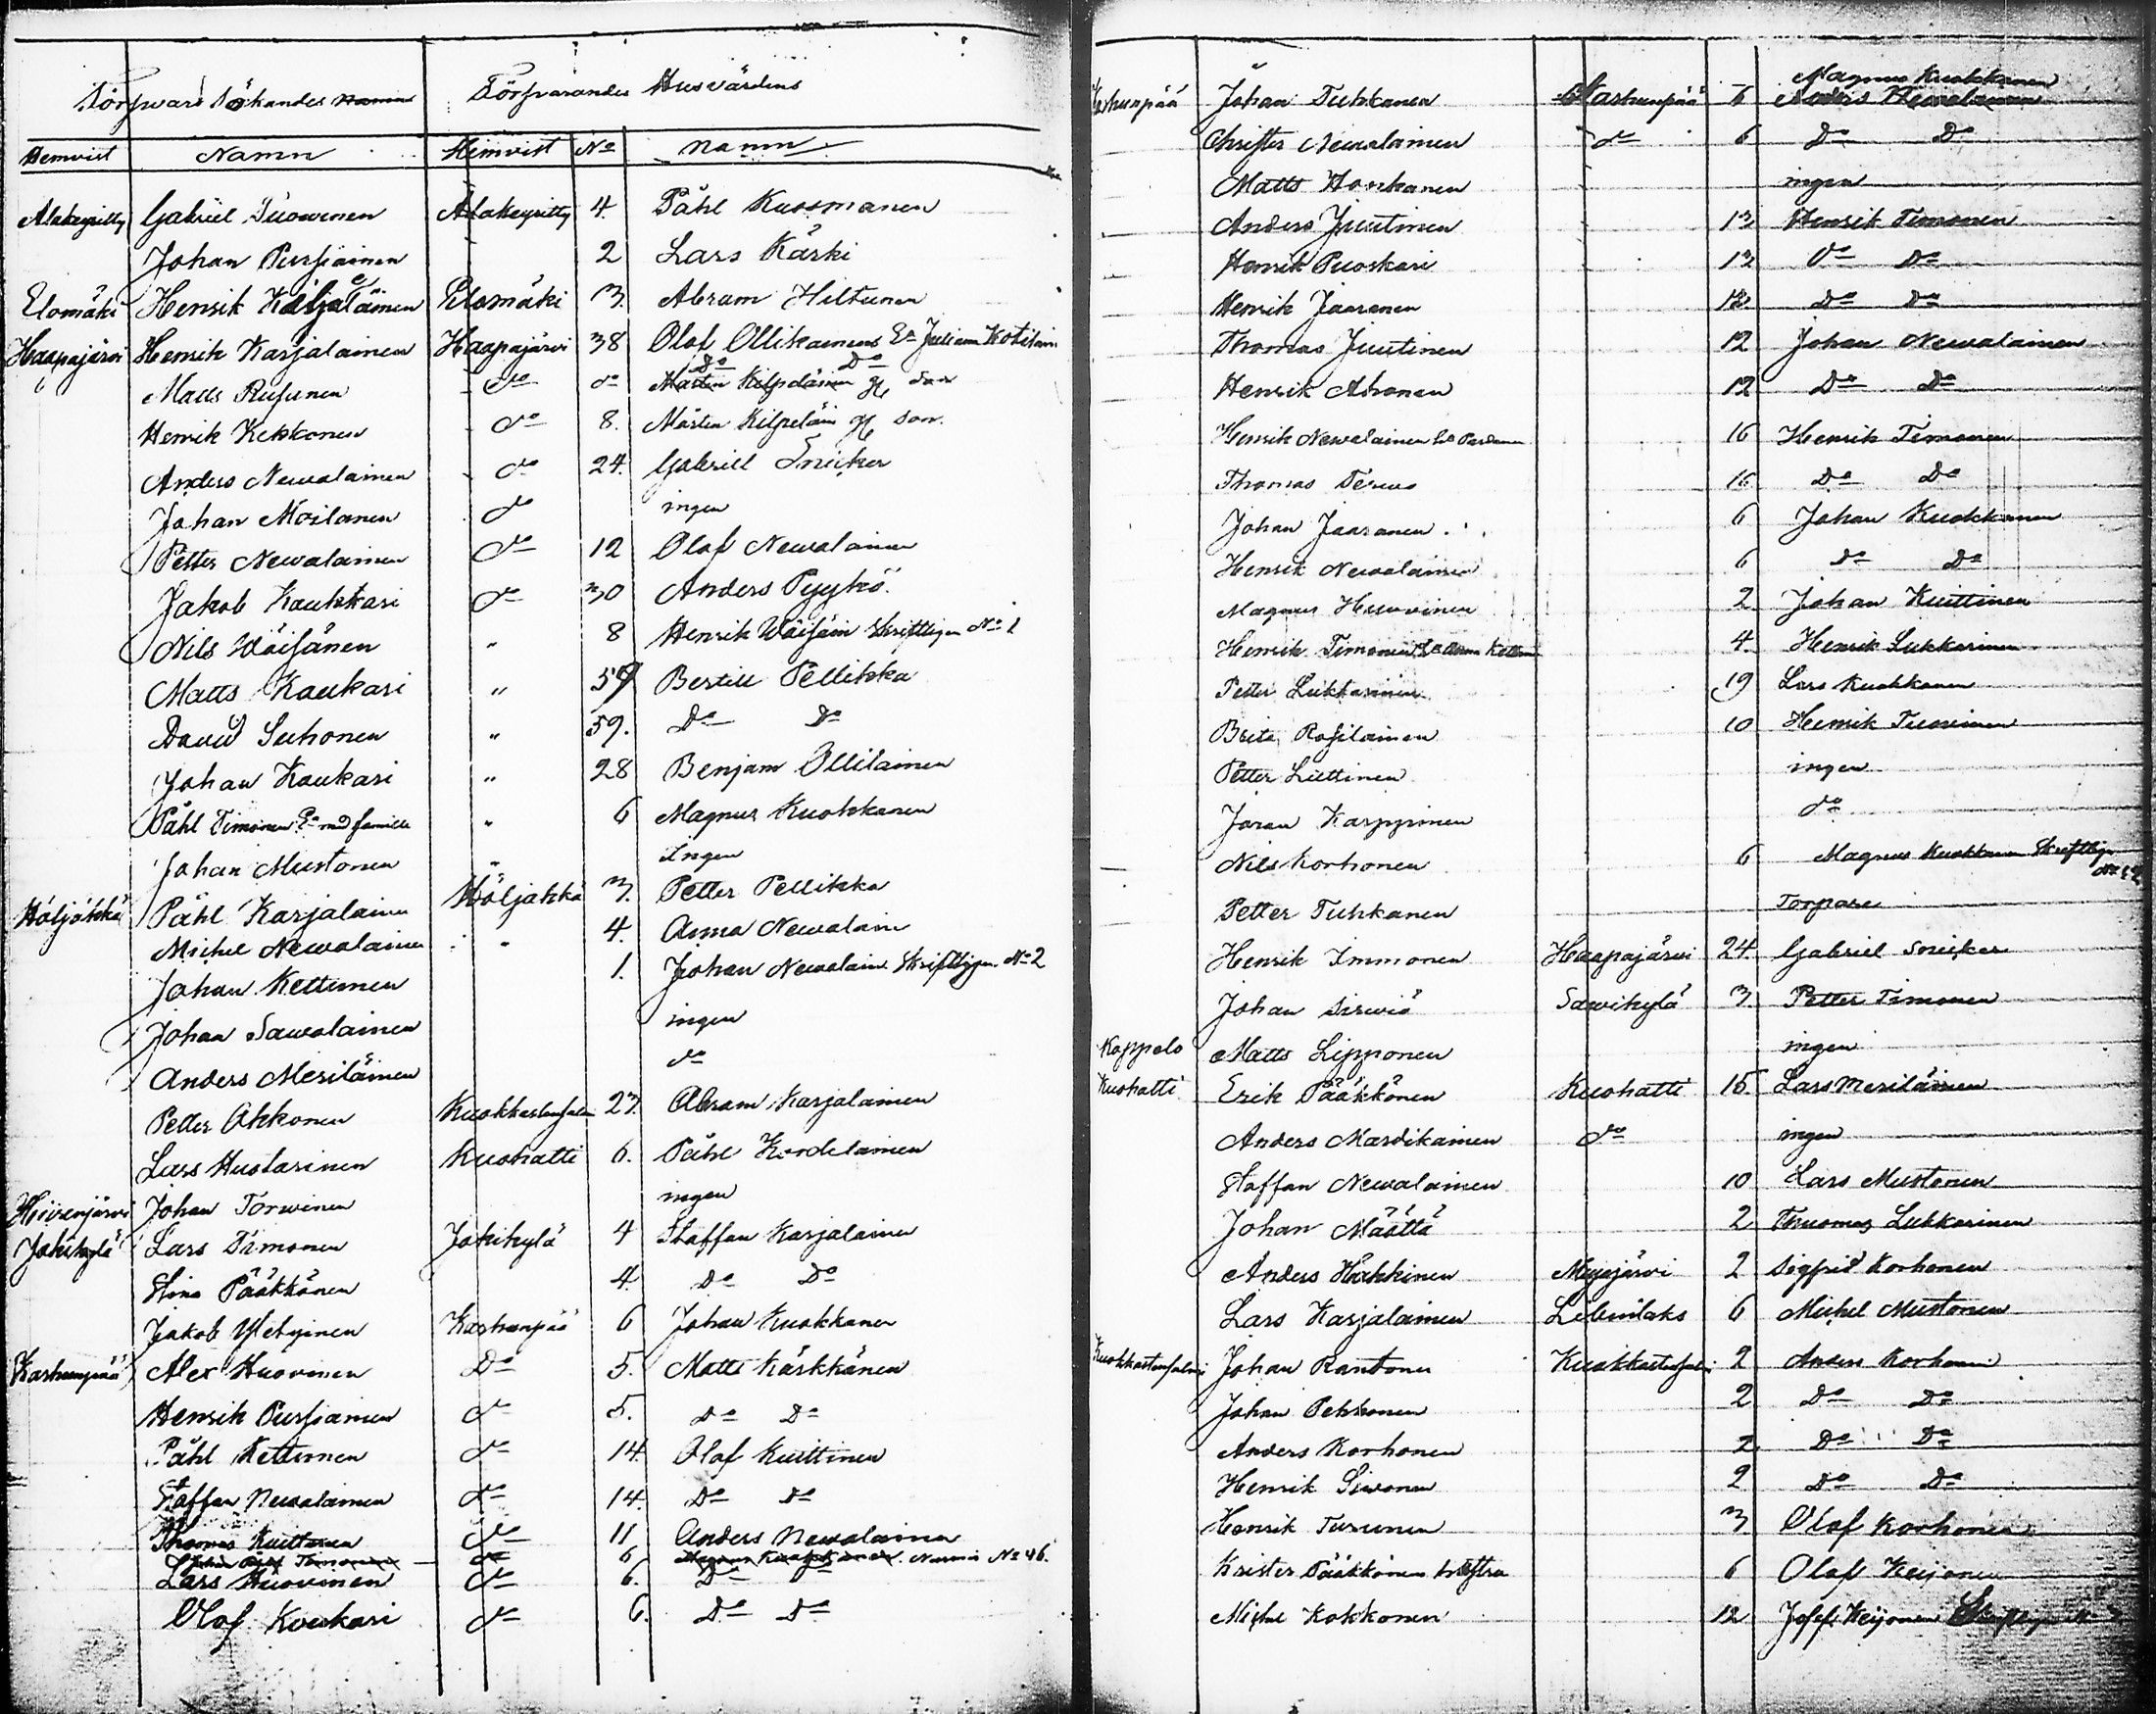 Försvars Sökandes Namn Försvarandes Husvärdens
Hemvist Namn Hemvist No Namn
Alakeyritty Gabriel Tuovinen Alakeyritty 4. Påhl Kuosmanen
Johan Pursiäinen 2 Lars Kärki
Elomäki Henrik Elomäki 3. Abram Hiltunen
Haapajärvi Henrik Karjalainen Haapajärvi 38 Olof Ollikainens Ea Juliana Kotilain
Do Do
Matts Rusunen do do Mårten Kilpeläinen
Henrik Kekkonen do 8. Mårten Kilpeläin son.
Anders Newalainen do 24. Gabriel Snicker
Johan Moilanen do ingen
Petter Newalainen do 12 Olof Newalainen
Jakob Kaukkari do 30 Anders Pyykö.
Nils Wäisänen " 8 Henrik Wäisäin Skriftligen No 1
Matts Kaukari " 59 Bertill Pellikka
David Suhonen " 59. Do Do
Johan Kaukari " 28 Benjam Ollilainen
Påhl Timonen Ea med familie " 6 Magnus Kuokkanen
Johan Mustonen " Ingen
Höljäkkä Påhl Karjalainen Höljäkkä 3. Petter Pellikka
Michel Newalainen " 4. Anna Newalain
Johan Kettunen 1. Johan Newalain Skriftligen No 2
Johan Sawolainen ingen
Anders Meriläinen do
Petter Akkonen 23. Abram Karjalainen
Lars Mustarinen Kuohatti 6. Påhl Kordelainen
Hiirenjärvi Johan Torwinen ingen
Jokikylä Lars Timonen Jokikylä 4 Staffan Karjalainen
Stina Pääkkönen 4. Do Do
Jakob Yletyinen Karhunpää 6 Johan Kuokkanen
Karhunpää Alex Huovinen Do 5. Matts Kärkkänen
Henrik Pursiainen do 5. Do Do
Påhl Kettunen do 14. Olof Kuittinen
Staffan Newalainen do 14. Do Do
Thomas Kuittinen do 11 Anders Newalainen
Timonen do 6 Magnus Kuokkanen. Nurmis No 46.
Lars Huovinen do 6. Do Do
Olof Koukari do 6. Do Do
Magnus Kuokkanen
Karhunpää Johan Tuhkanen Karhunpää 6 Anders Newalainen
Christer Newalainen do 6 Do Do
Matts Honkanen ingen
Anders Juutinen 13 Henrik Timonen
Henrik Puoskari 13 Do Do
Henrik Jaaranen 12 Do Do
Thomas Juutinen 12 Johan Newalainen
Henrik Ahonen 12 Do Do
Henrik Newalainen 16 Henrik Timonen
Thomas Terwo 16 Do Do
Johan Jaaranen 6 Johan Kuokkanen
Henrik Newalainen 6 Do Do
Magnus Huovinen 2 Johan Kuittinen
Henrik Timonen Ea Anna Kettunen 4. Henrik Lukkarinen
Petter Lukkarinen 19 Lars Kuokkanen
Brita Rosilainen 10 Henrik Tuovinen
Petter Luttinen ingen
Joran Karppinen do
Nils Korhonen 6 Magnus Kuokkanen Skriftligen
Petter Tuhkanen Torpare
Henrik Immonen Haapajärvi 24. Gabriel Snicker
Johan Sirwiö Sawikylä 3. Petter Timonen
Koppelo Matts Lipponen ingen
Kuohatti Erik Pääkkönen Kuohatti 15. Lars Meriläinen
Anders Mardikainen do ingen
Staffan Newalainen 10 Lars Mustonen
Johan Määttä 2 Thuomas Lukkarinen
Anders Hakkinen Mujejärvi 2 Sigfrid Korhonen
Lars Karjalainen 6 Michel Mustonen
Johan Rantonen 2 Anders Korhonen
Johan Pekkonen 2 Do Do
Anders Korhonen 2 Do Do
Henrik Siwonen 2 Do Do
Henrik Turunen 3 Olof Korhonen
Krister Pääkkönen 6 Olof Keijonen
Michel Kokkonen 12 Josef Keijonen